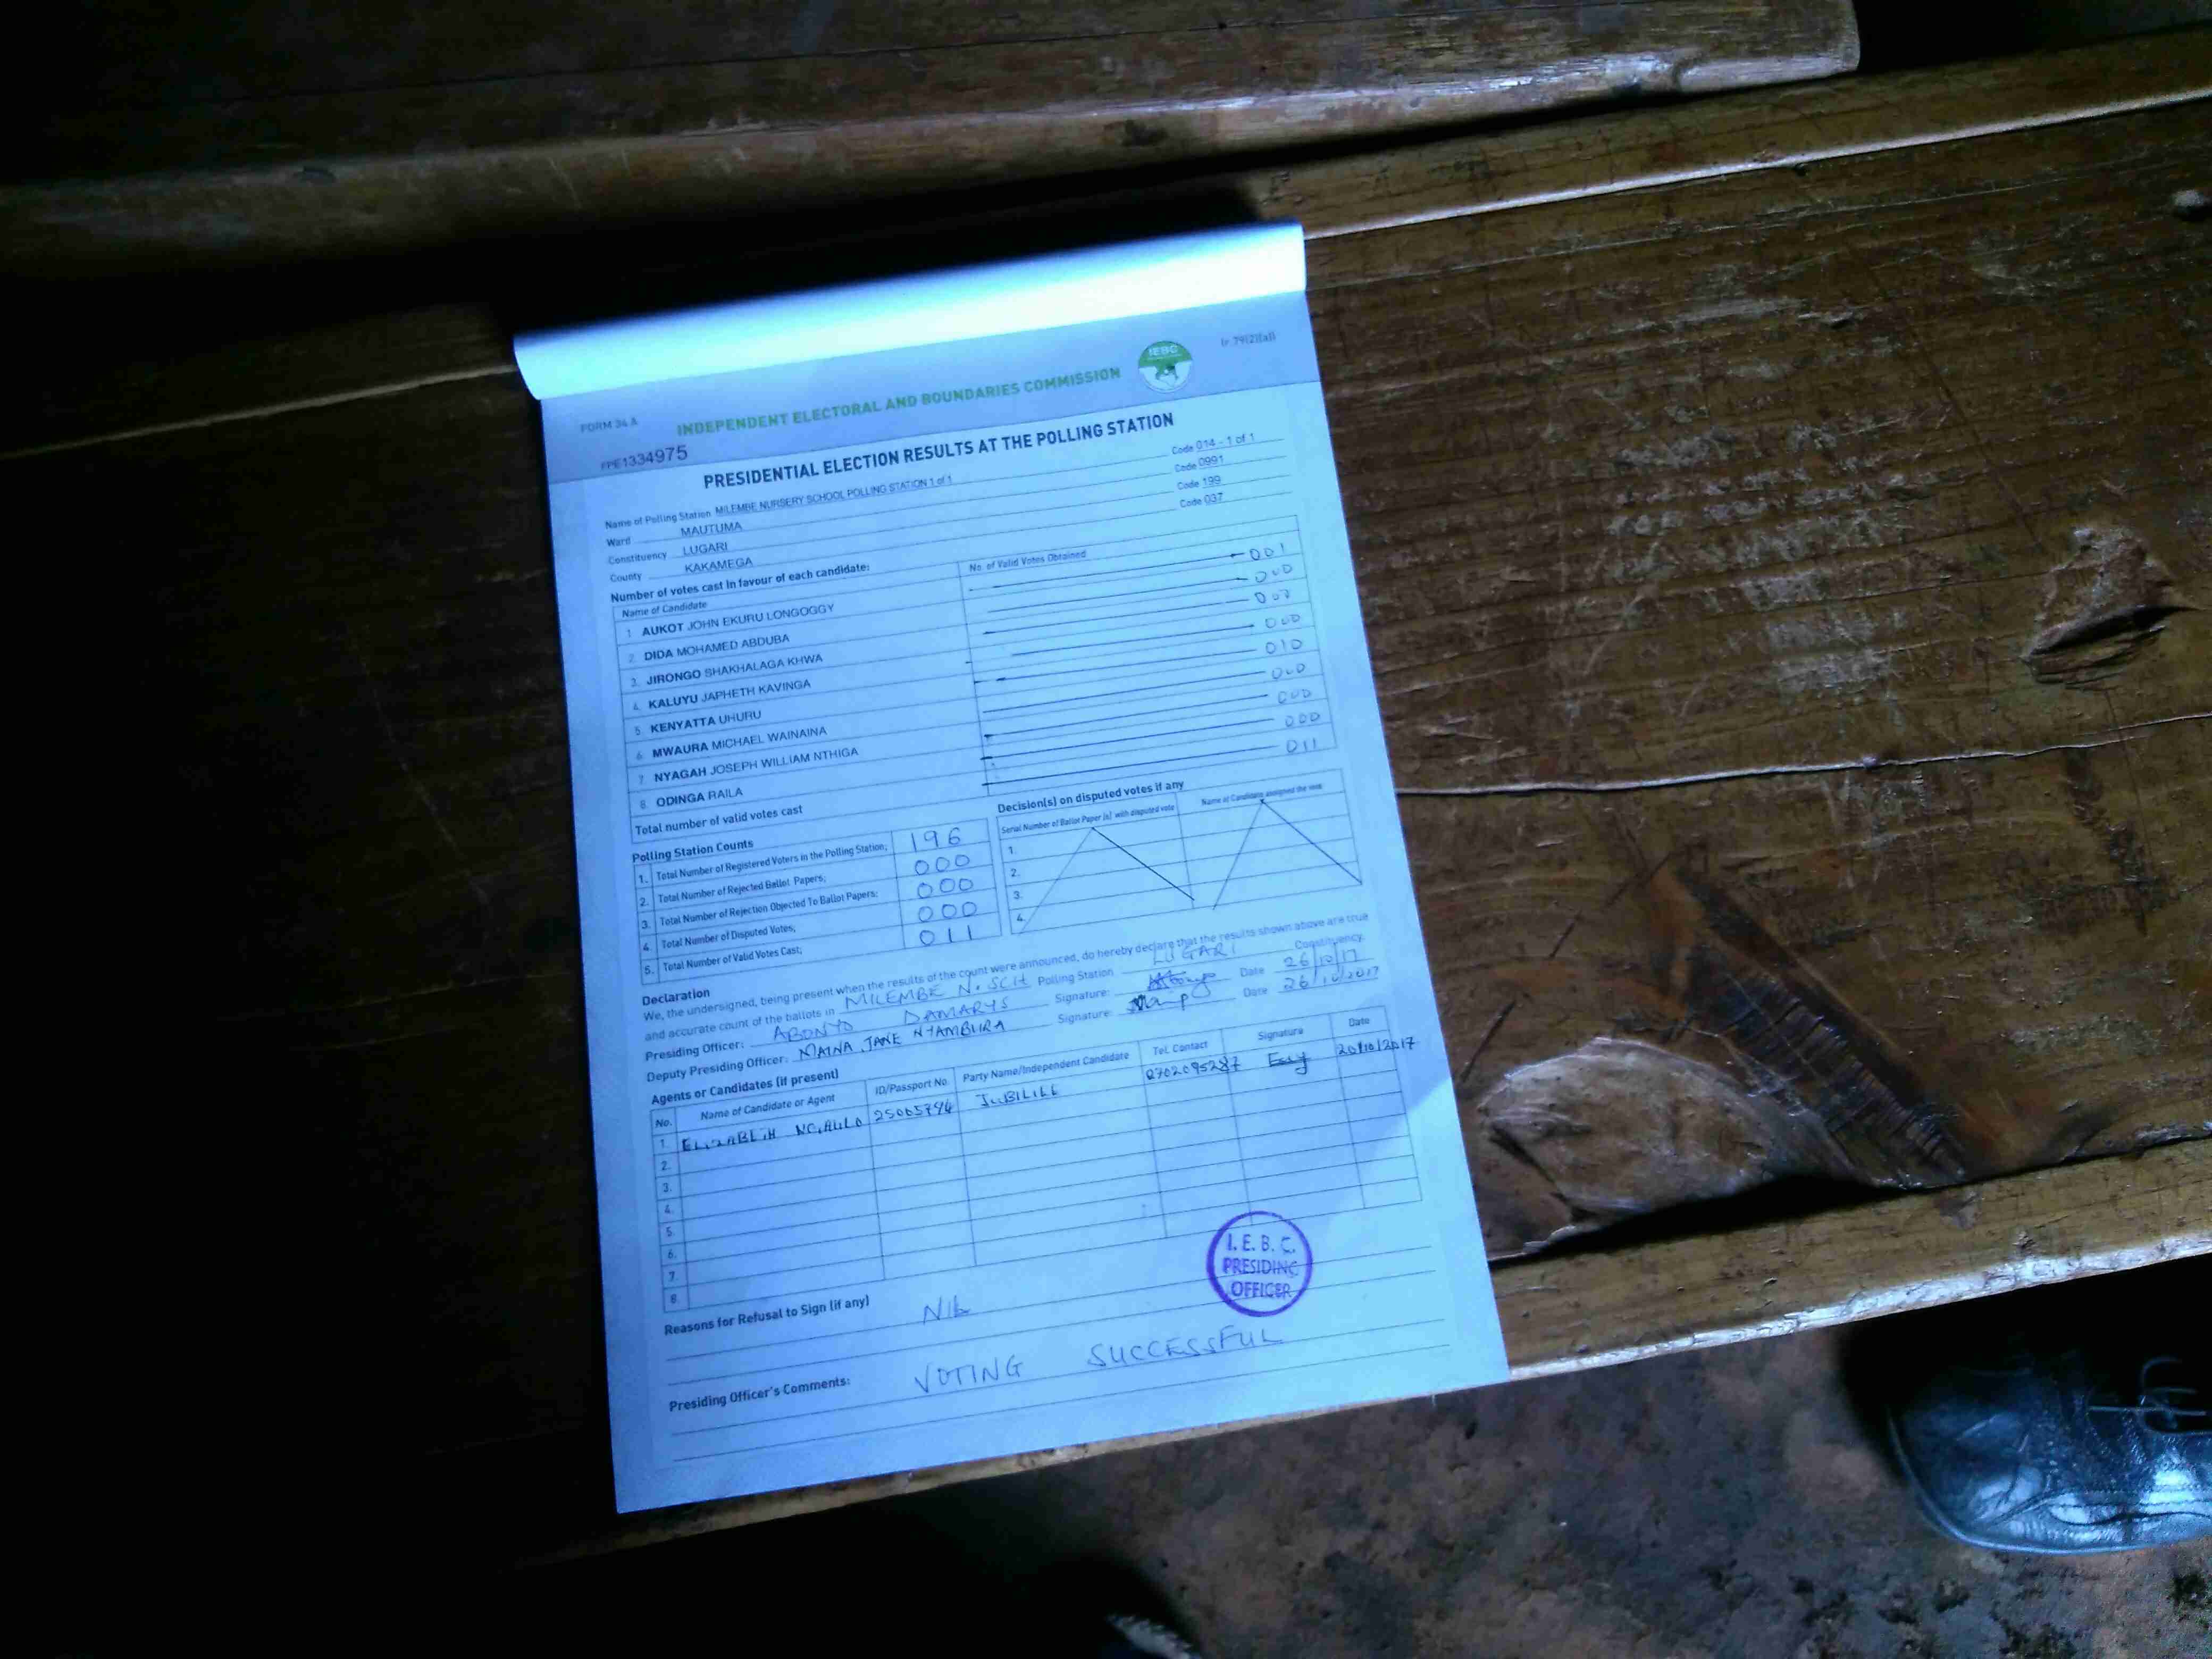 FORM 34 A
INDEPENDENT ELECTORAL AND BOUNDARIES COMMISSION
IEBC
(r. 79(2)(a))
FPE1334975
PRESIDENTIAL ELECTION RESULTS AT THE POLLING STATION
Name of Polling Station MILEMBE NURSERY SCHOOL POLLING STATION 1 of 1 Code 014 - 1 of 1
Ward MAUTUMA Code 0991
Constituency LUGARI Code 199
County KAKAMEGA Code 037
Number of votes cast in favour of each candidate:
Name of Candidate No. of Valid Votes Obtained
1. AUKOT JOHN EKURU LONGOGGY 001
2. DIDA MOHAMED ABDUBA 000
3. JIRONGO SHAKHALAGA KHWA
4. KALUYU JAPHETH KAVINGA 000
5. KENYATTA UHURU 010
6. MWAURA MICHAEL WAINAINA 000
7. NYAGAH JOSEPH WILLIAM NTHIGA 000
8. ODINGA RAILA 000
Total number of valid votes cast 011
Polling Station Counts
1. Total Number of Registered Voters in the Polling Station; 196
2. Total Number of Rejected Ballot Papers; 000
3. Total Number of Rejection Objected To Ballot Papers; 000
4. Total Number of Disputed Votes; 000
5. Total Number of Valid Votes Cast; 011
Decision(s) on disputed votes if any
Serial Number of Ballot Paper (s) with disputed vote Name of Candidate assigned the vote
1.
2.
3.
4.
Declaration
We, the undersigned, being present when the results of the count were announced, do hereby declare that the results shown above are true
and accurate count of the ballots in MILEMBE N. SCH Polling Station LUGARI Constituency.
Presiding Officer: ABONYO DAMARYS Signature: Date 26/10/17
Deputy Presiding Officer: MAINA JANE NYAMBURA Signature: Date 26/10/2017
Agents or Candidates (if present)
No. Name of Candidate or Agent ID/Passport No. Party Name/Independent Candidate Tel. Contact Signature Date
1. 25065794 JUBILEE 0702095287
2.
3.
4.
5.
6.
7.
8.
I.E.B.C.
PRESIDING
OFFICER
Reasons for Refusal to Sign (if any) NIL
Presiding Officer's Comments: VOTING SUCCESSFUL